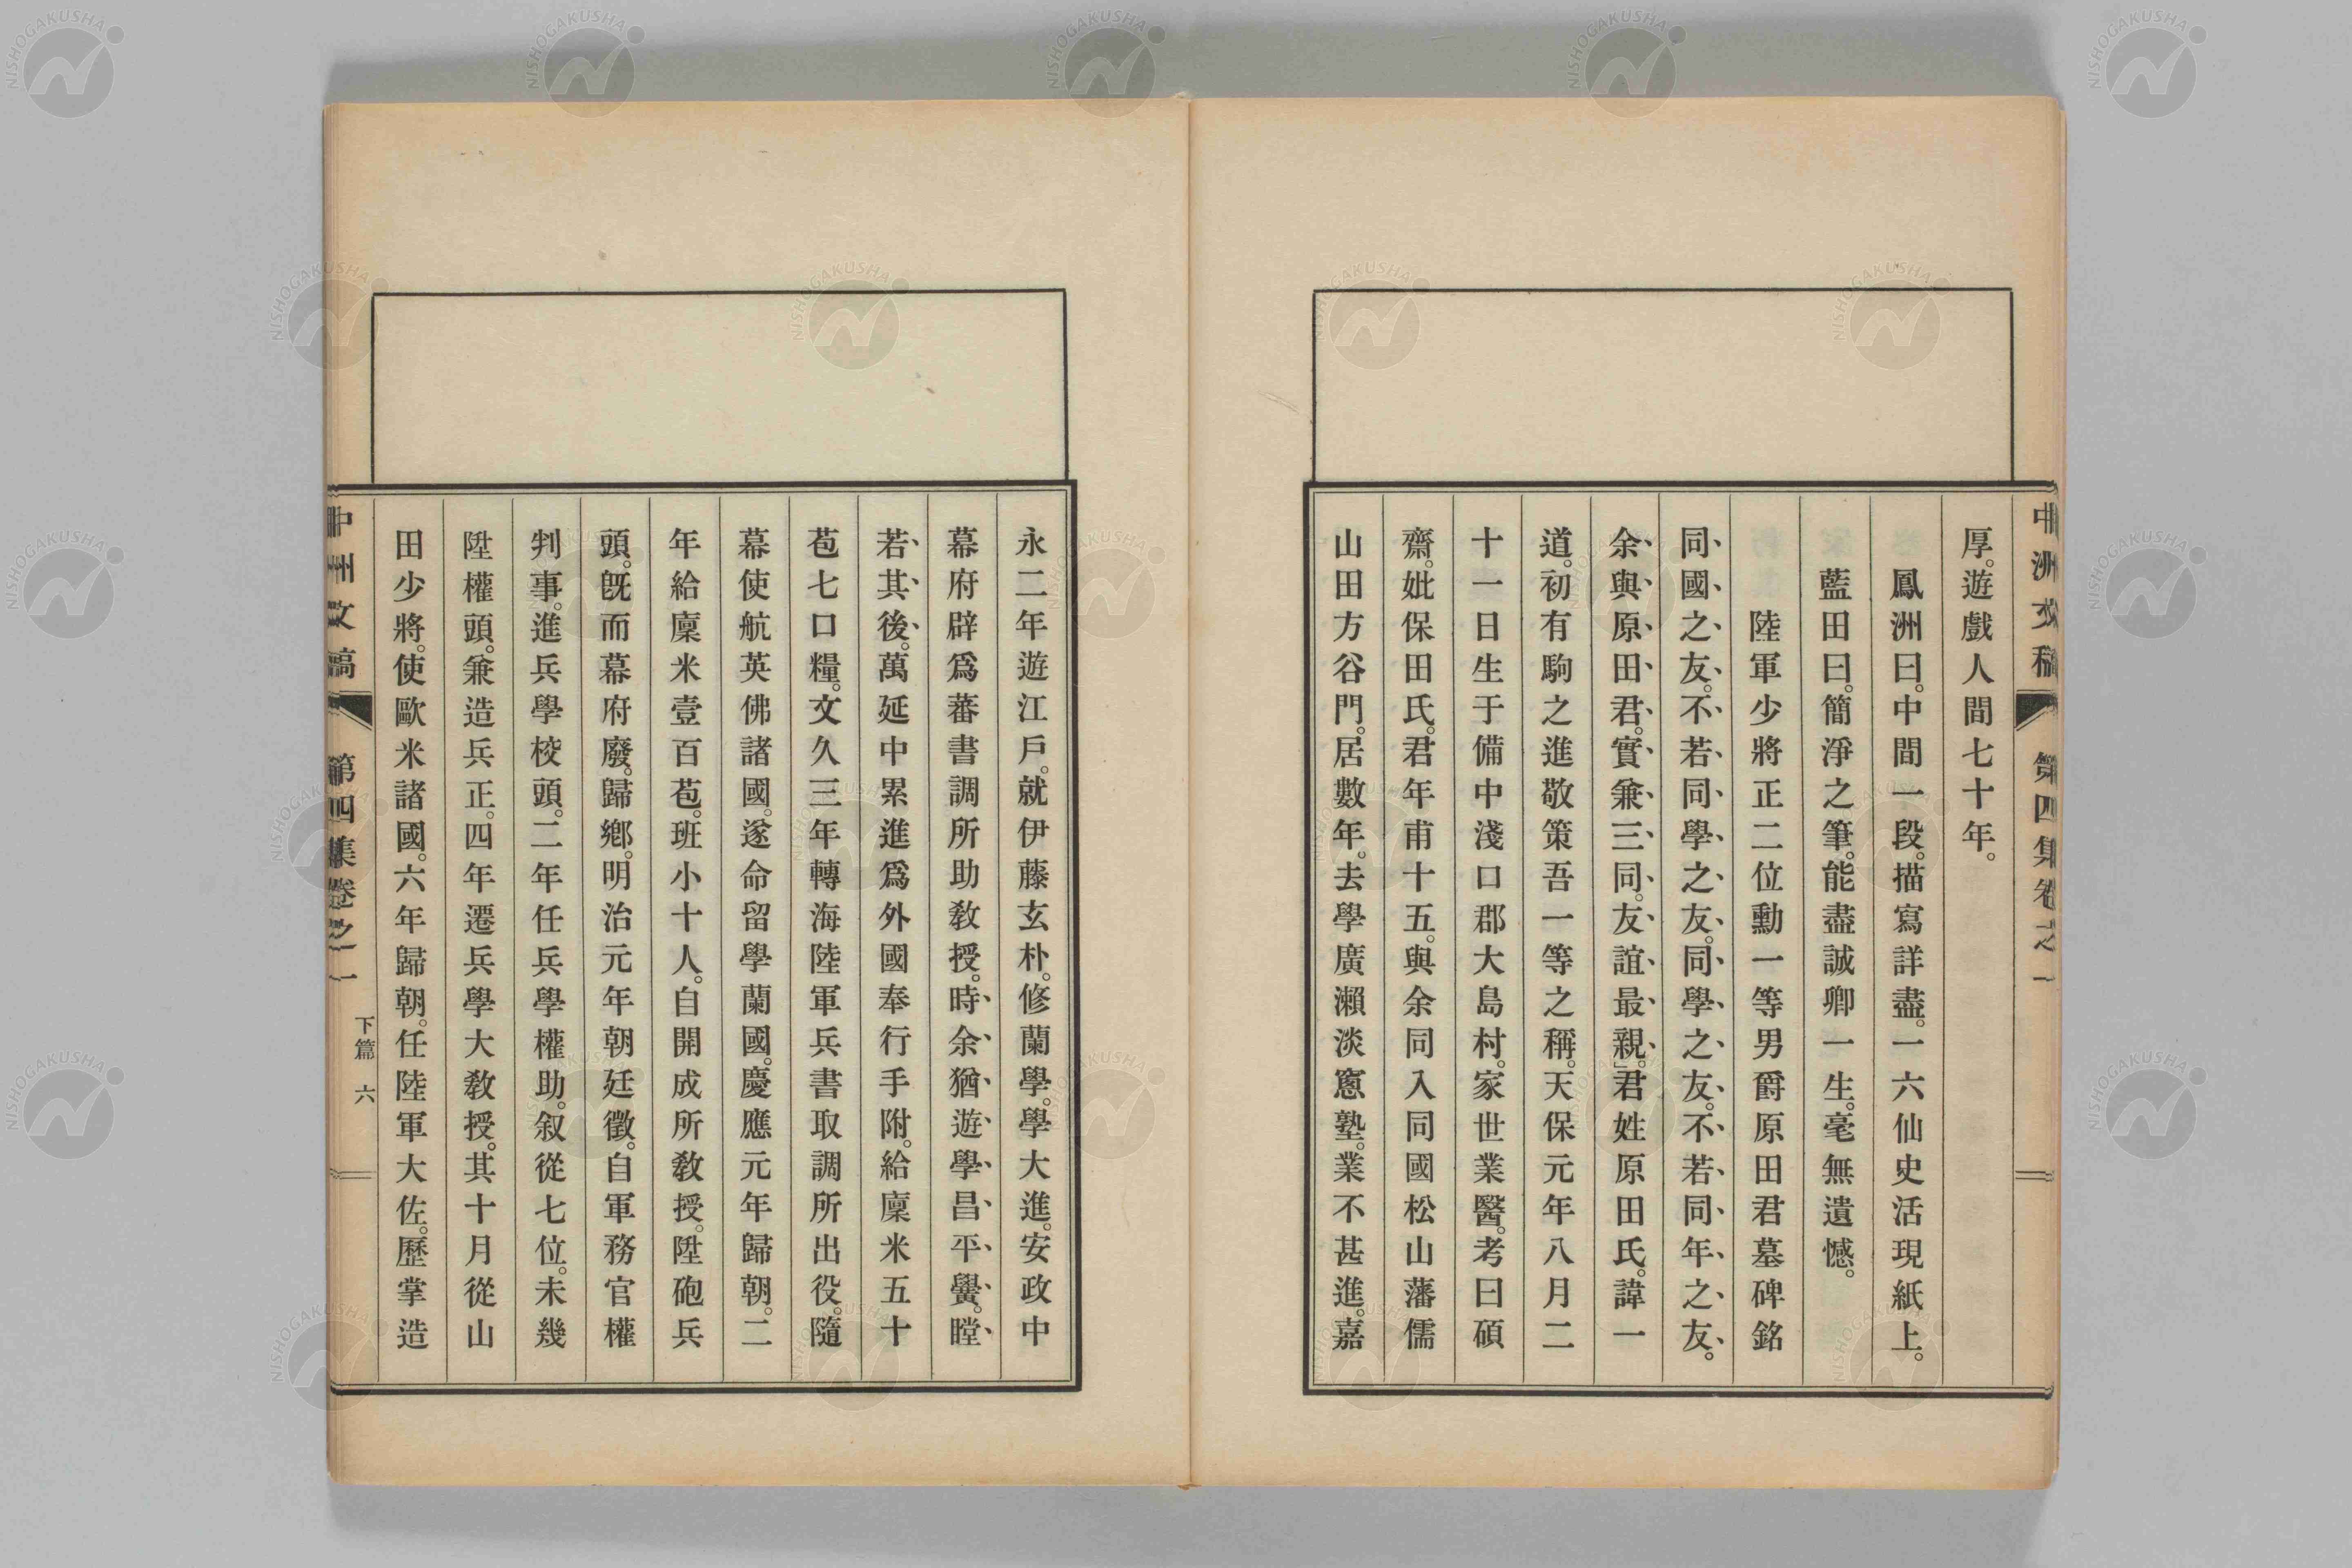 中洲文稿 第四集卷之一
厚。遊戲人間七十年。
鳳洲曰。中間一段。描寫詳盡。一六仙史活現紙上。
藍田曰。簡淨之筆。能盡誠卿一生。毫無遺憾。
陸軍少將正二位勳一等男爵原田君墓碑銘
同、國、之、友。不、若、同、學、之、友。同、學、之、友。不、若、同、年、之、友。
余、與、原、田、君。實、兼、三、同。友、誼、最、親。」君姓原田氏。諱一
道。初有駒之進敬策吾一等之稱。天保元年八月二
十一日生于備中淺口郡大島村。家世業醫。考曰碩
齋。妣保田氏。君年甫十五。與余同入同國松山藩儒
山田方谷門。居數年。去學廣瀨淡窻塾。業不甚進。嘉
永二年遊江戶。就伊藤玄朴。修蘭學。學大進。安政中
幕府辟爲蕃書調所助敎授。時、余、猶、遊、學、昌、平、黌。瞠、
若、其、後。萬延中累進爲外國奉行手附。給廩米五十
苞七口糧。文久三年轉海陸軍兵書取調所出役。隨
幕使航英佛諸國。遂命留學蘭國。慶應元年歸朝。二
年給廩米壹百苞。班小十人。自開成所敎授。陞砲兵
頭。旣而幕府廢。歸鄕。明治元年朝廷徵。自軍務官權
判事。進兵學校頭。二年任兵學權助。叙從七位。未幾
陞權頭。兼造兵正。四年遷兵學大敎授。其十月從山
田少將。使歐米諸國。六年歸朝。任陸軍大佐。歷掌造
中洲文稿 第四集卷之一 下篇 六
NISHOGAKUSHA